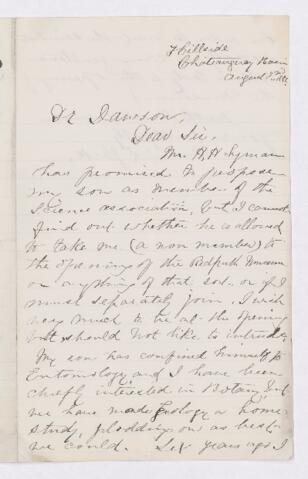 Hillside
Chateauguay Basin
August 2nd
Dr Dawson,
Dear Sir,
Mr. H. H. Lyman
has promised to propose
my son as member of the
Science association, but I cannot
find out whether he is allowed
to take me (a non member) to
the opening of the Redpath Museum
or anything of that sort or if I
must separately join. I wish
very much to be at the opening
but should not like to intrude.
My son has confined himself to
Entomology and I have been
chiefly interested in Botany but
we have made Zoology a home
study, plodding on as best
we could. Six years ago I